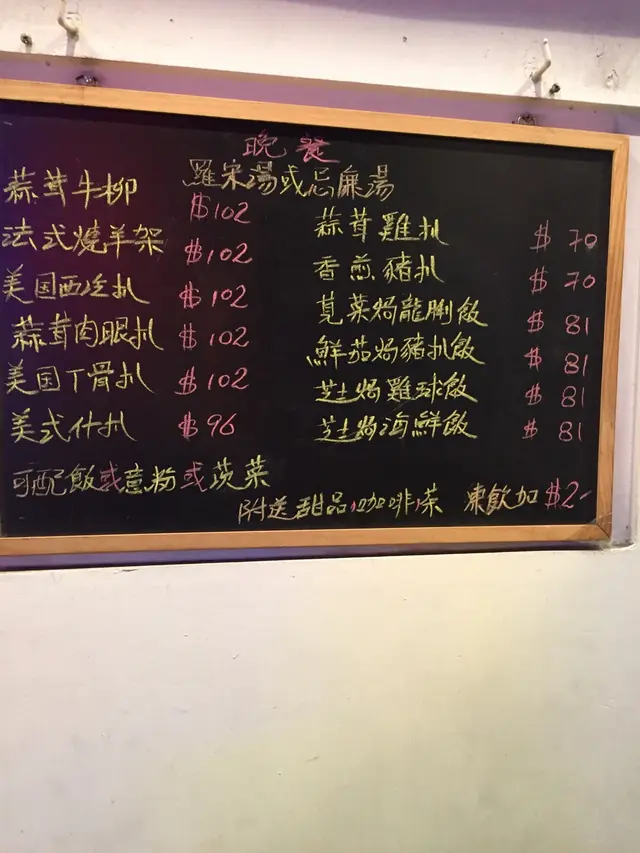 晚餐
羅宋湯或忌廉湯
蒜茸牛柳 $102
法式燒羊架 $102
美国西冷扒 $102
蒜茸肉眼扒 $102
美国丁骨扒 $102
美式什扒 $96
蒜茸雞扒 $70
香煎豬扒 $70
莧菜焗龍脷飯 $81
鮮茄焗豬扒飯 $81
芝士焗雞球飯 $81
芝士焗海鮮飯 $81
可配飯或意粉或茨菜
附送甜品,咖啡,茶 東飲加$2-